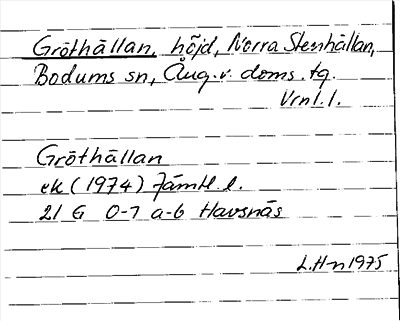 Gröthällan, höjd, Norra Stenhällan,
Bodums sn, Ång.v. doms. tg.
Vrnl.l.
Gröthällan
ek (1974) Jämtl. l.
21 G 0-1 a-b Havsnäs
L.H-n 1975